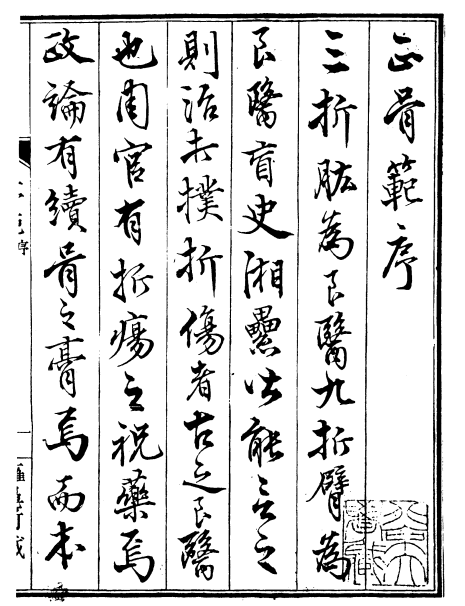 正骨範序
三折肱為良醫九折臂為
良醫盲史湘纍皆能言之
則治支撲折傷者古之良醫
也周官有折瘍之祝藥焉
政論有續骨之膏焉而本